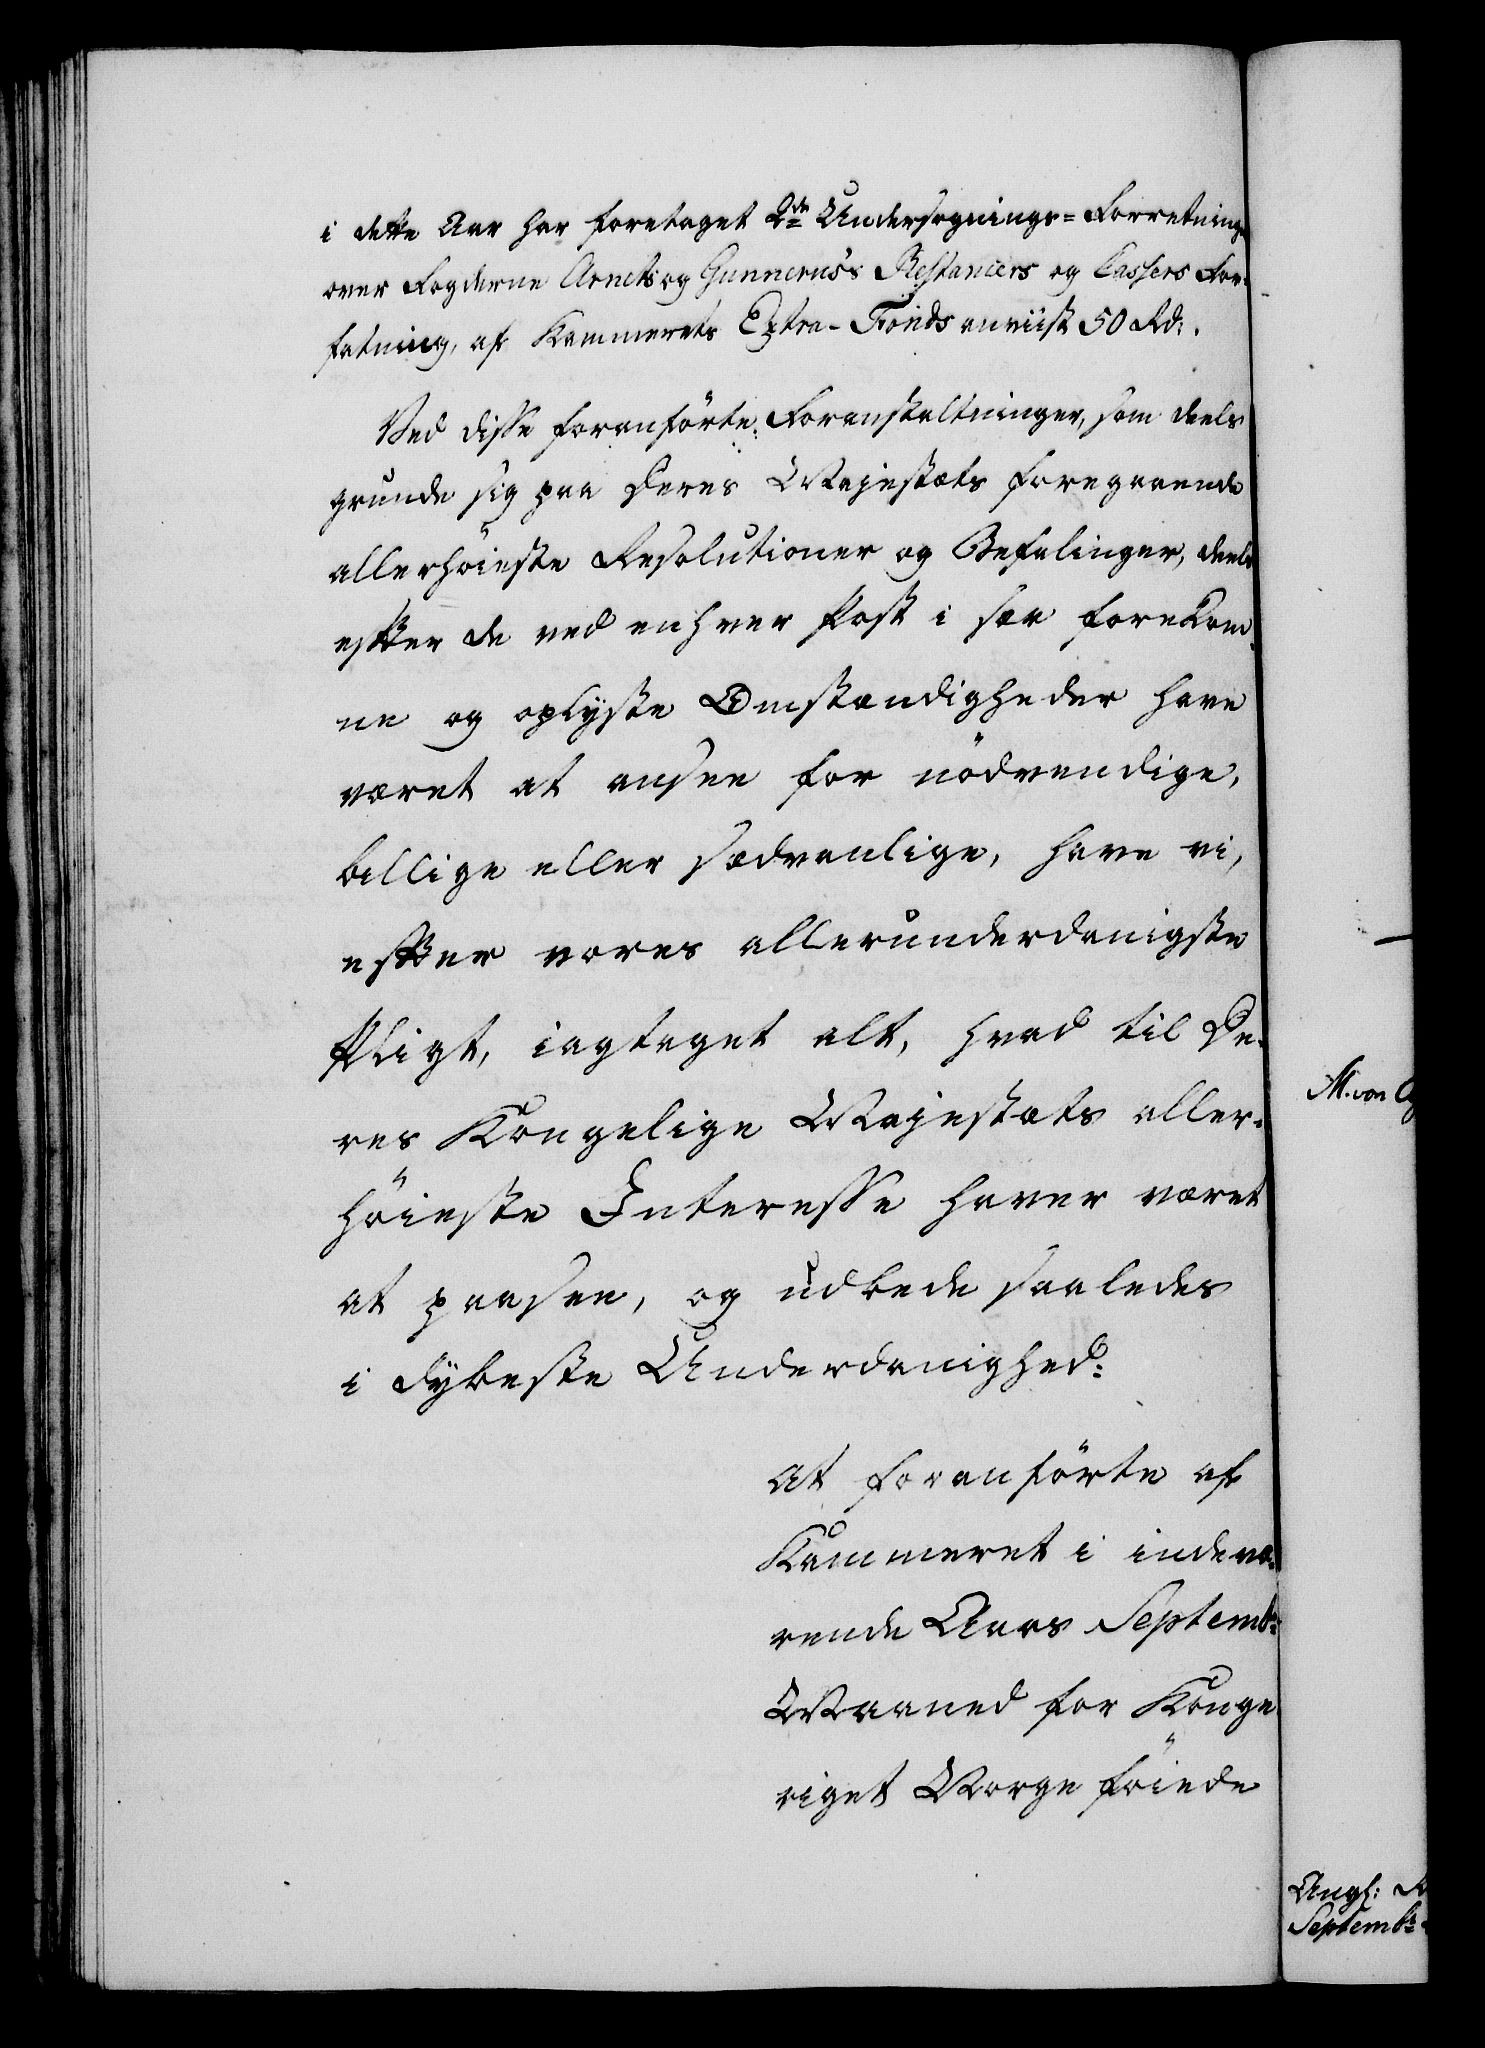 i dette Aar har foretaget 2de Undersøgnings=Forretninge
over Fogderne Arnets og Gunnerus's Restancers og Cassers For-
fatning, af Kammerets Extra-Fonds anviist 50 Rd:.
Ved disse foranførte Foranstaltninger, som deels
grunde sig paa Deres Majestæts foregaaende
allerhöieste Resolutioner og Befalinger, deels
efter de ved enhver Post i sær forekom-
ne og oplyste Omstændigheder have
været at ansee for nödvendige,
billige eller sædvanlige, have vi,
efter vores allerunderdanigste
Pligt, iagtaget alt, hvad til De-
res Kongelige Majestæts aller-
höieste Interesse haver været
at paasee, og udbede saaledes
i dybeste Underdanighed:
At foranförte af
Kammeret i indevæ-
rende Aars Septembr:
Maaned for Konge
riget Norge föiede
M. von
Angl:
Septembr: